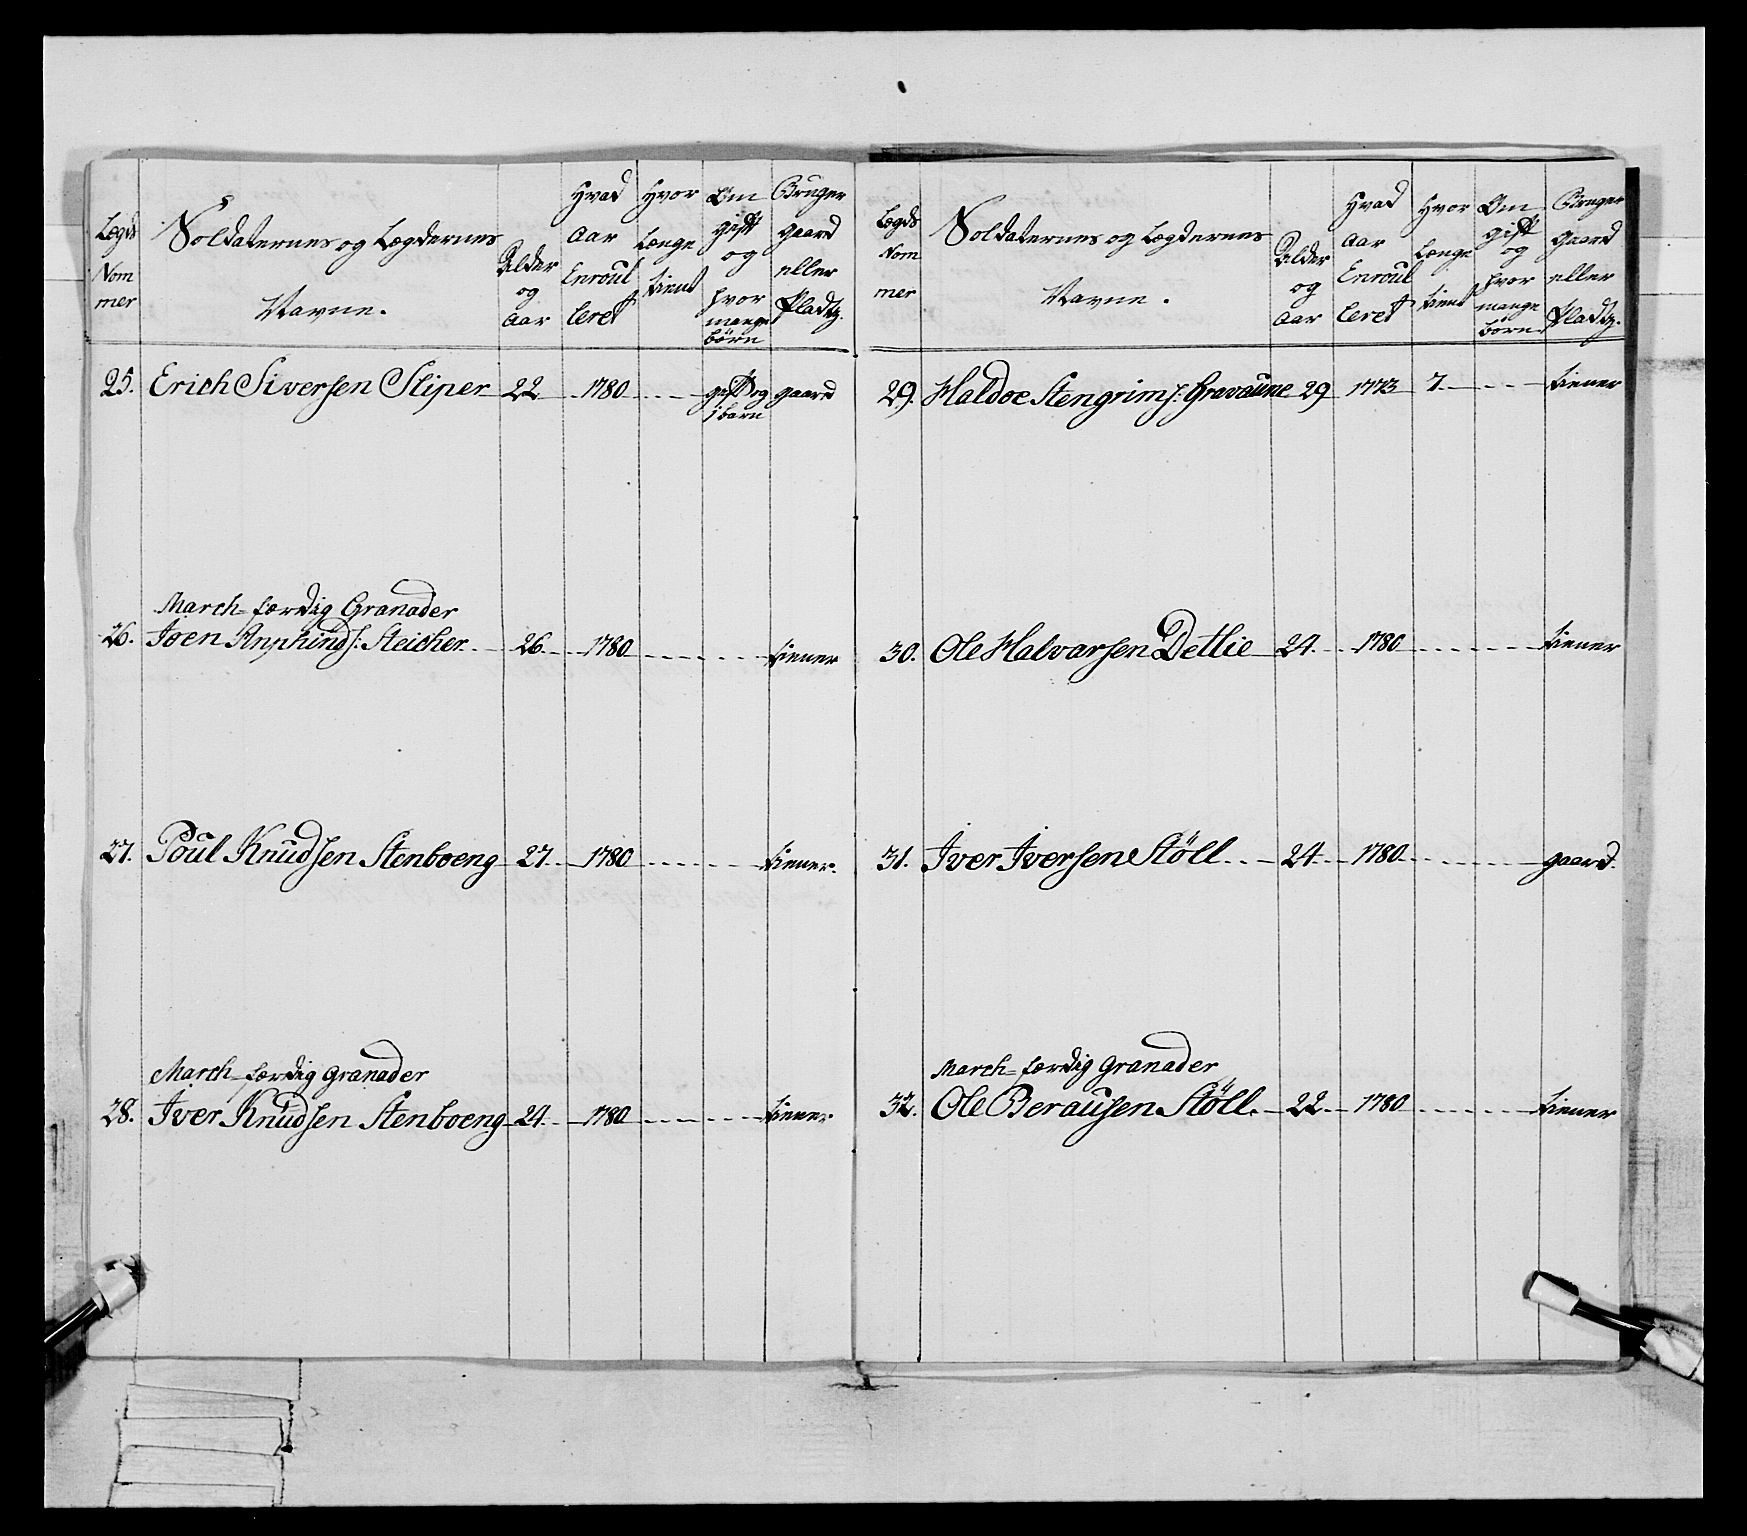 Lægds Nommer | Soldaternes og Lægdernes Navne. | Alder og Aar | Hvad Aar Enroulleret | Hvor Længe tient | Om gift og hvor mange børn | Bruger gaard eller Pladtz.
25. Erich Siversen Sliper 22 1780 gift og 1 barn gaard
March-færdig Granader
26. Joen Arnphinds: Steicher 26 1780 tiener
27. Poul Knudsen Stenboeng 27 1780 tiener.
March-færdig Granader
28. Iver Knudsen Stenboeng 24 1780 tiener
Lægds Nommer | Soldaternes og Lægdernes Navne. | Alder og Aar | Hvad Aar Enroulleret | Hvor Længe tient | Om gift og hvor mange børn | Bruger Gaard eller Pladtz.
29. Haldoe Stengrims: Gravaune 29 1773 7 tiener
30. Ole Halvarsen Detlie 24 1780 tiener
31. Iver Iversen Støll 24 1780 gaard.
March-færdig Granader
32. Ole Berausen Støll. 22 1780 tiener